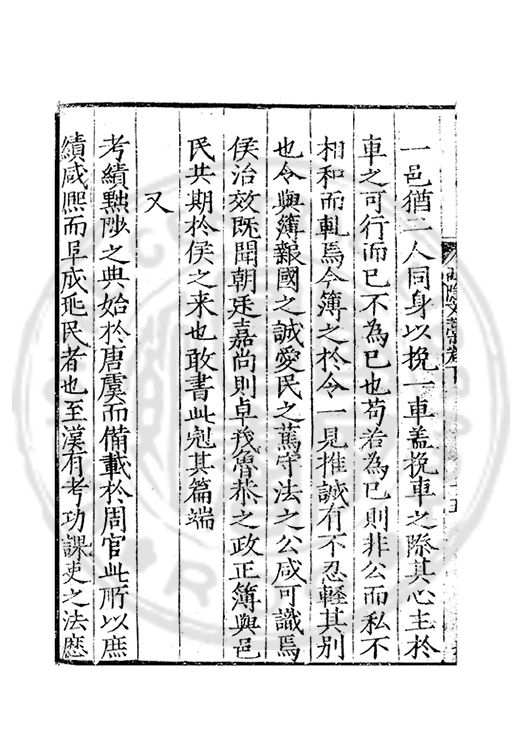 一邑猶二人同身以挽一車盖挽車之際其心主於
車之可行而已不為已也苟若為已則非公而私不
相和而軋焉今簿之於令一見推誠有不忍輕其别
也令與簿報國之誠愛民之篤守法之公咸可識焉
侯治效既聞朝廷嘉尚則卓茂魯恭之政正簿與邑
民共期於侯之来也敢書此冠其篇端
又
考績黜陟之典始於唐虞而備載於周官此所以庶
績咸熙而阜成兆民者也至漢有考功課吏之法應